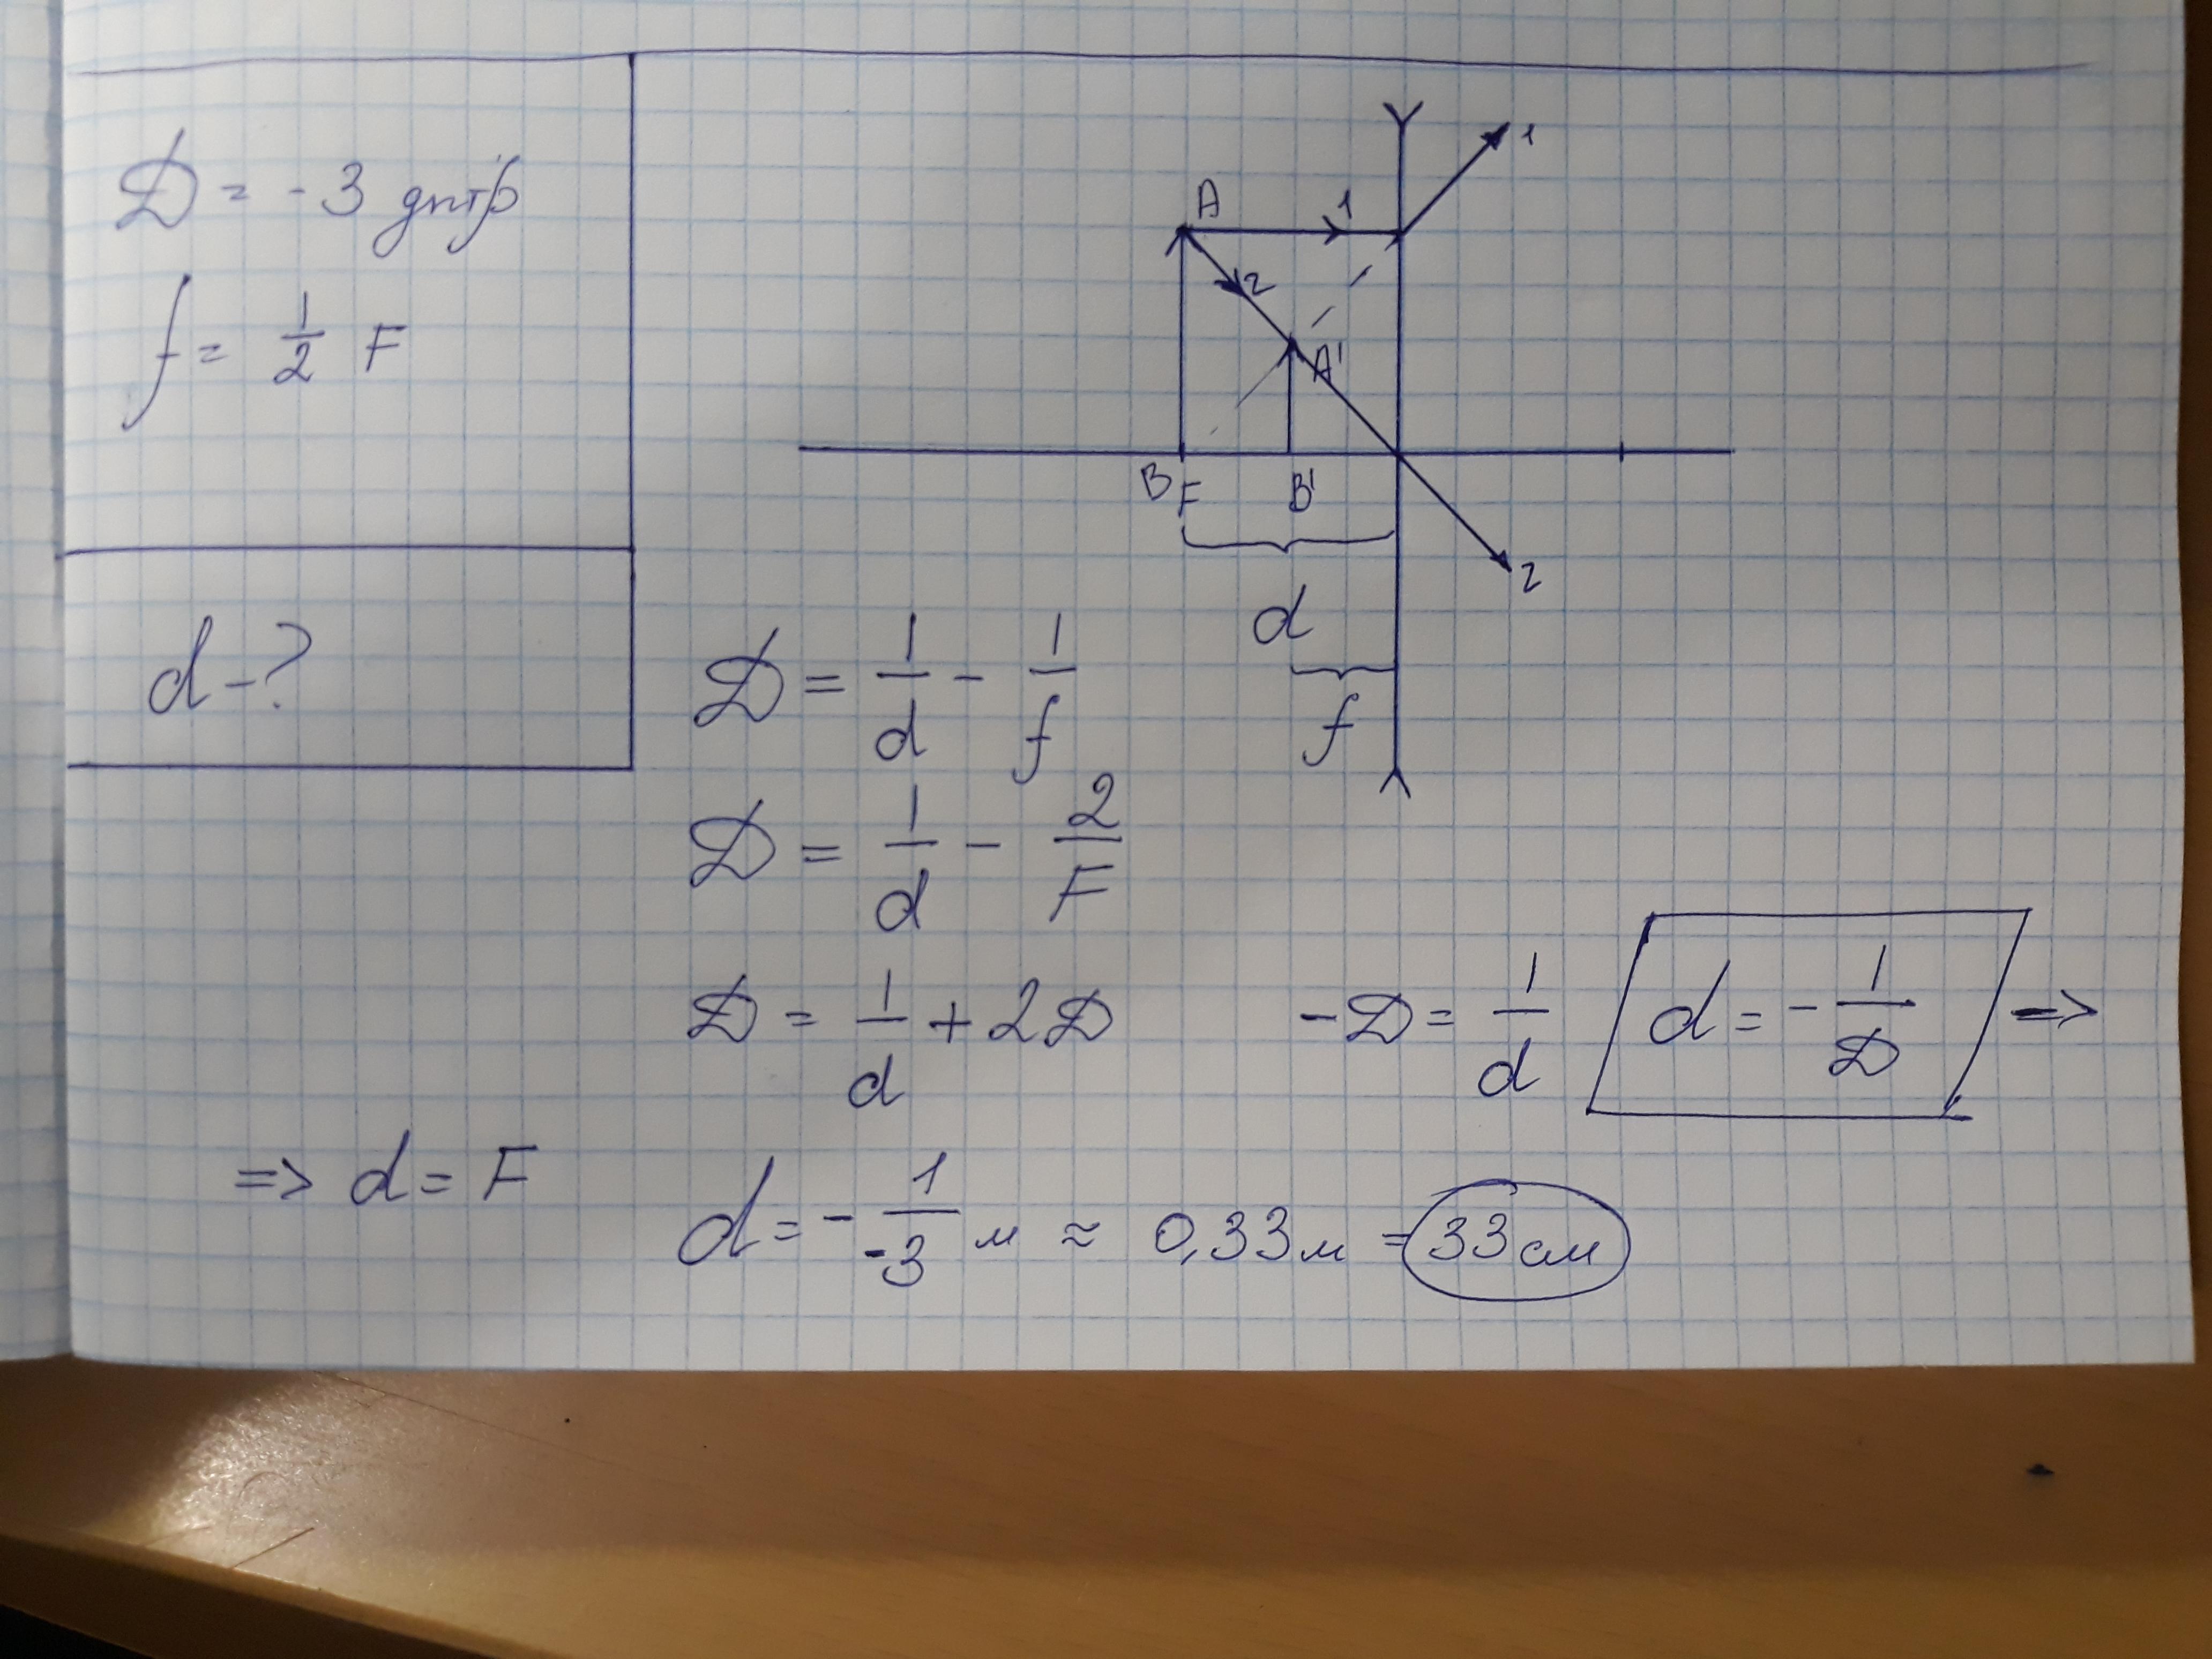 D = - 3 дптр
f = 1/2 F
d - ?
A 1 1
2
A'
B F B' 2
d
f
D = 1/d - 1/f
D = 1/d - 2/F
D = 1/d + 2D -D = 1/d d = - 1/D =>
=> d = F d = - 1/-3 м ≈ 0,33 м = 33 см